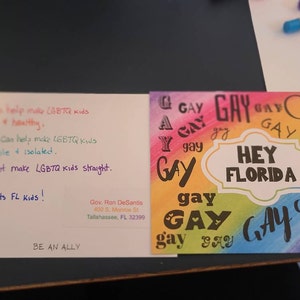 help make LGBTQ kids
healthy.
can help make LGBTQ kids
& isolated.
make LGBTQ kids straight.
FL kids!
Gov. Ron DeSantis
400 S. Monroe St.
Tallahassee, FL 32399
BE AN ALLY
GAY GAY GAY GAY
GAY gay GAY
gay
GAY HEY
FLORIDA
gay
GAY GAY
gay GAY